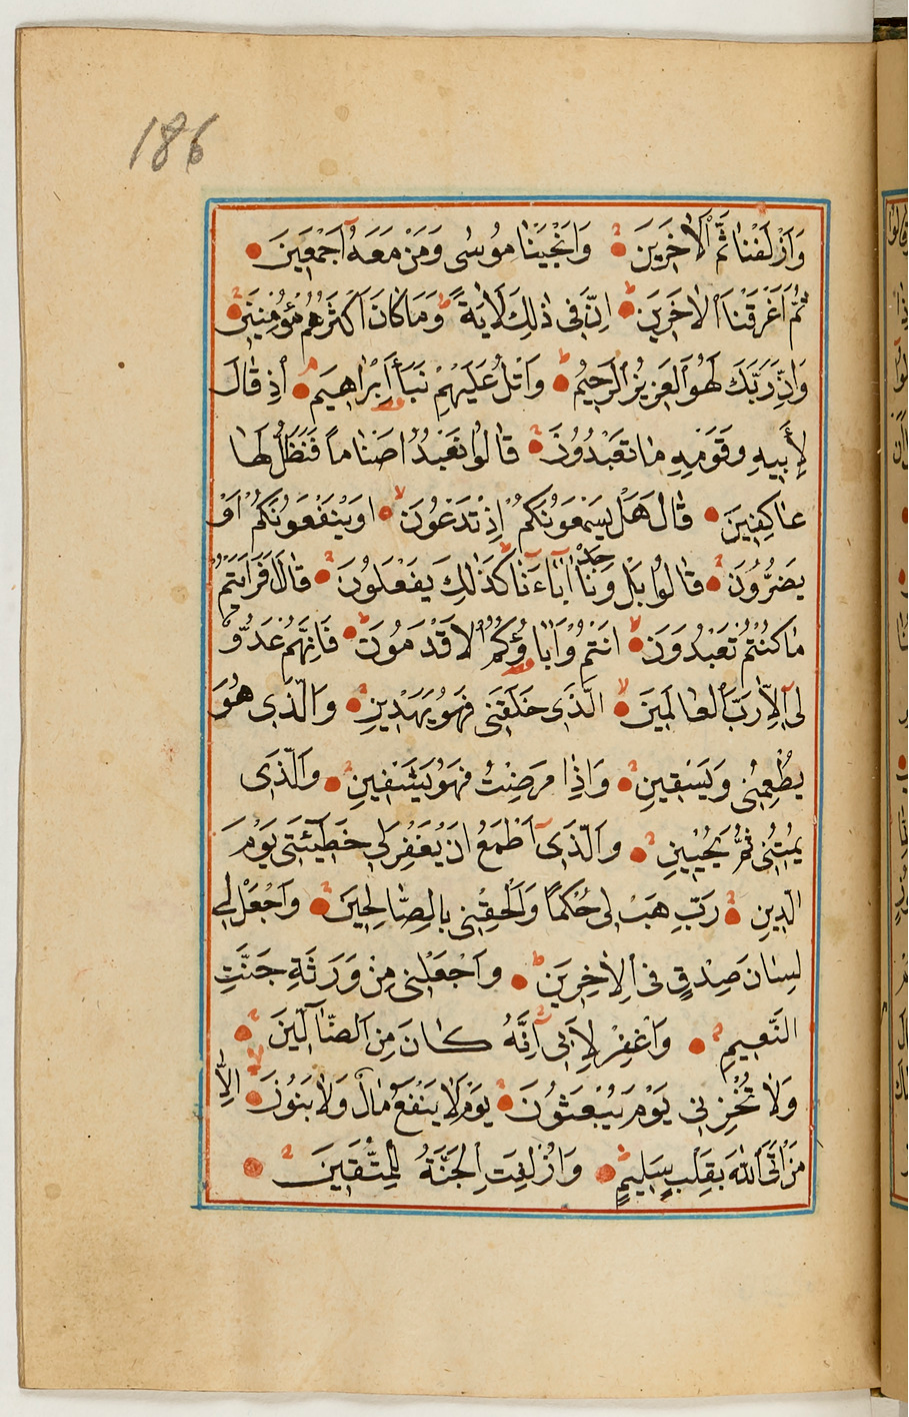 186
وَاَزْلَفْنَا ثَمَّ الْاٰخَرِينَ وَاَنْجَيْنَا مُوسٰى وَمَنْ مَعَهُ اَجْمَعِينَ
ثُمَّ اَغْرَقْنَا الْاٰخَرِينَ اِنَّ فِى ذٰلِكَ لَاٰيَةً وَمَا كَانَ اَكْثَرُهُمْ مُؤْمِنِينَ
وَاِنَّ رَبَّكَ لَهُوَ الْعَزِيزُ الرَّحِيمُ وَاتْلُ عَلَيْهِمْ نَبَاَ اِبْرٰاهِيمَ اِذْ قَالَ
لِاَبِيهِ وَقَوْمِهِ مَا تَعْبُدُونَ قَالُوا نَعْبُدُ اَصْنَاماً فَنَظَلُّ لَهَا
عَاكِفِينَ قَالَ هَلْ يَسْمَعُونَكُمْ اِذْ تَدْعُونَ اَوْ يَنْفَعُونَكُمْ اَوْ
يَضُرُّونَ قَالُوا بَلْ وَجَدْنَا اٰبَاءَنَا كَذٰلِكَ يَفْعَلُونَ قَالَ اَفَرَاَيْتُمْ
مَا كُنْتُمْ تَعْبُدُونَ اَنْتُمْ وَاٰبَاؤُكُمُ الْاَقْدَمُونَ فَاِنَّهُمْ عَدُوٌّ
لِى اِلَّا رَبَّ الْعَالَمِينَ الَّذِى خَلَقَنِى فَهُوَ يَهْدِينِ وَالَّذِى هُوَ
يُطْعِمُنِى وَيَسْقِينِ وَاِذَا مَرِضْتُ فَهُوَ يَشْفِينِ وَالَّذِى
يُمِيتُنِى ثُمَّ يُحْيِينِ وَالَّذِى اَطْمَعُ اَنْ يَغْفِرَ لِى خَطِيئَتِى يَوْمَ
الدِّينِ رَبِّ هَبْ لِى حُكْماً وَاَلْحِقْنِى بِالصَّالِحِينَ وَاجْعَلْ لِى
لِسَانَ صِدْقٍ فِى الْاٰخِرِينَ وَاجْعَلْنِى مِنْ وَرَثَةِ جَنَّتِ
النَّعِيمِ وَاغْفِرْ لِاَبِى اِنَّهُ كَانَ مِنَ الضَّآلِّينَ
وَلَا تُخْزِنِى يَوْمَ يُبْعَثُونَ يَوْمَ لَا يَنْفَعُ مَالٌ وَلَا بَنُونَ اِلَّا
مَنْ اَتَى اللهَ بِقَلْبٍ سَلِيمٍ وَاُزْلِفَتِ الْجَنَّةُ لِلْمُتَّقِينَ